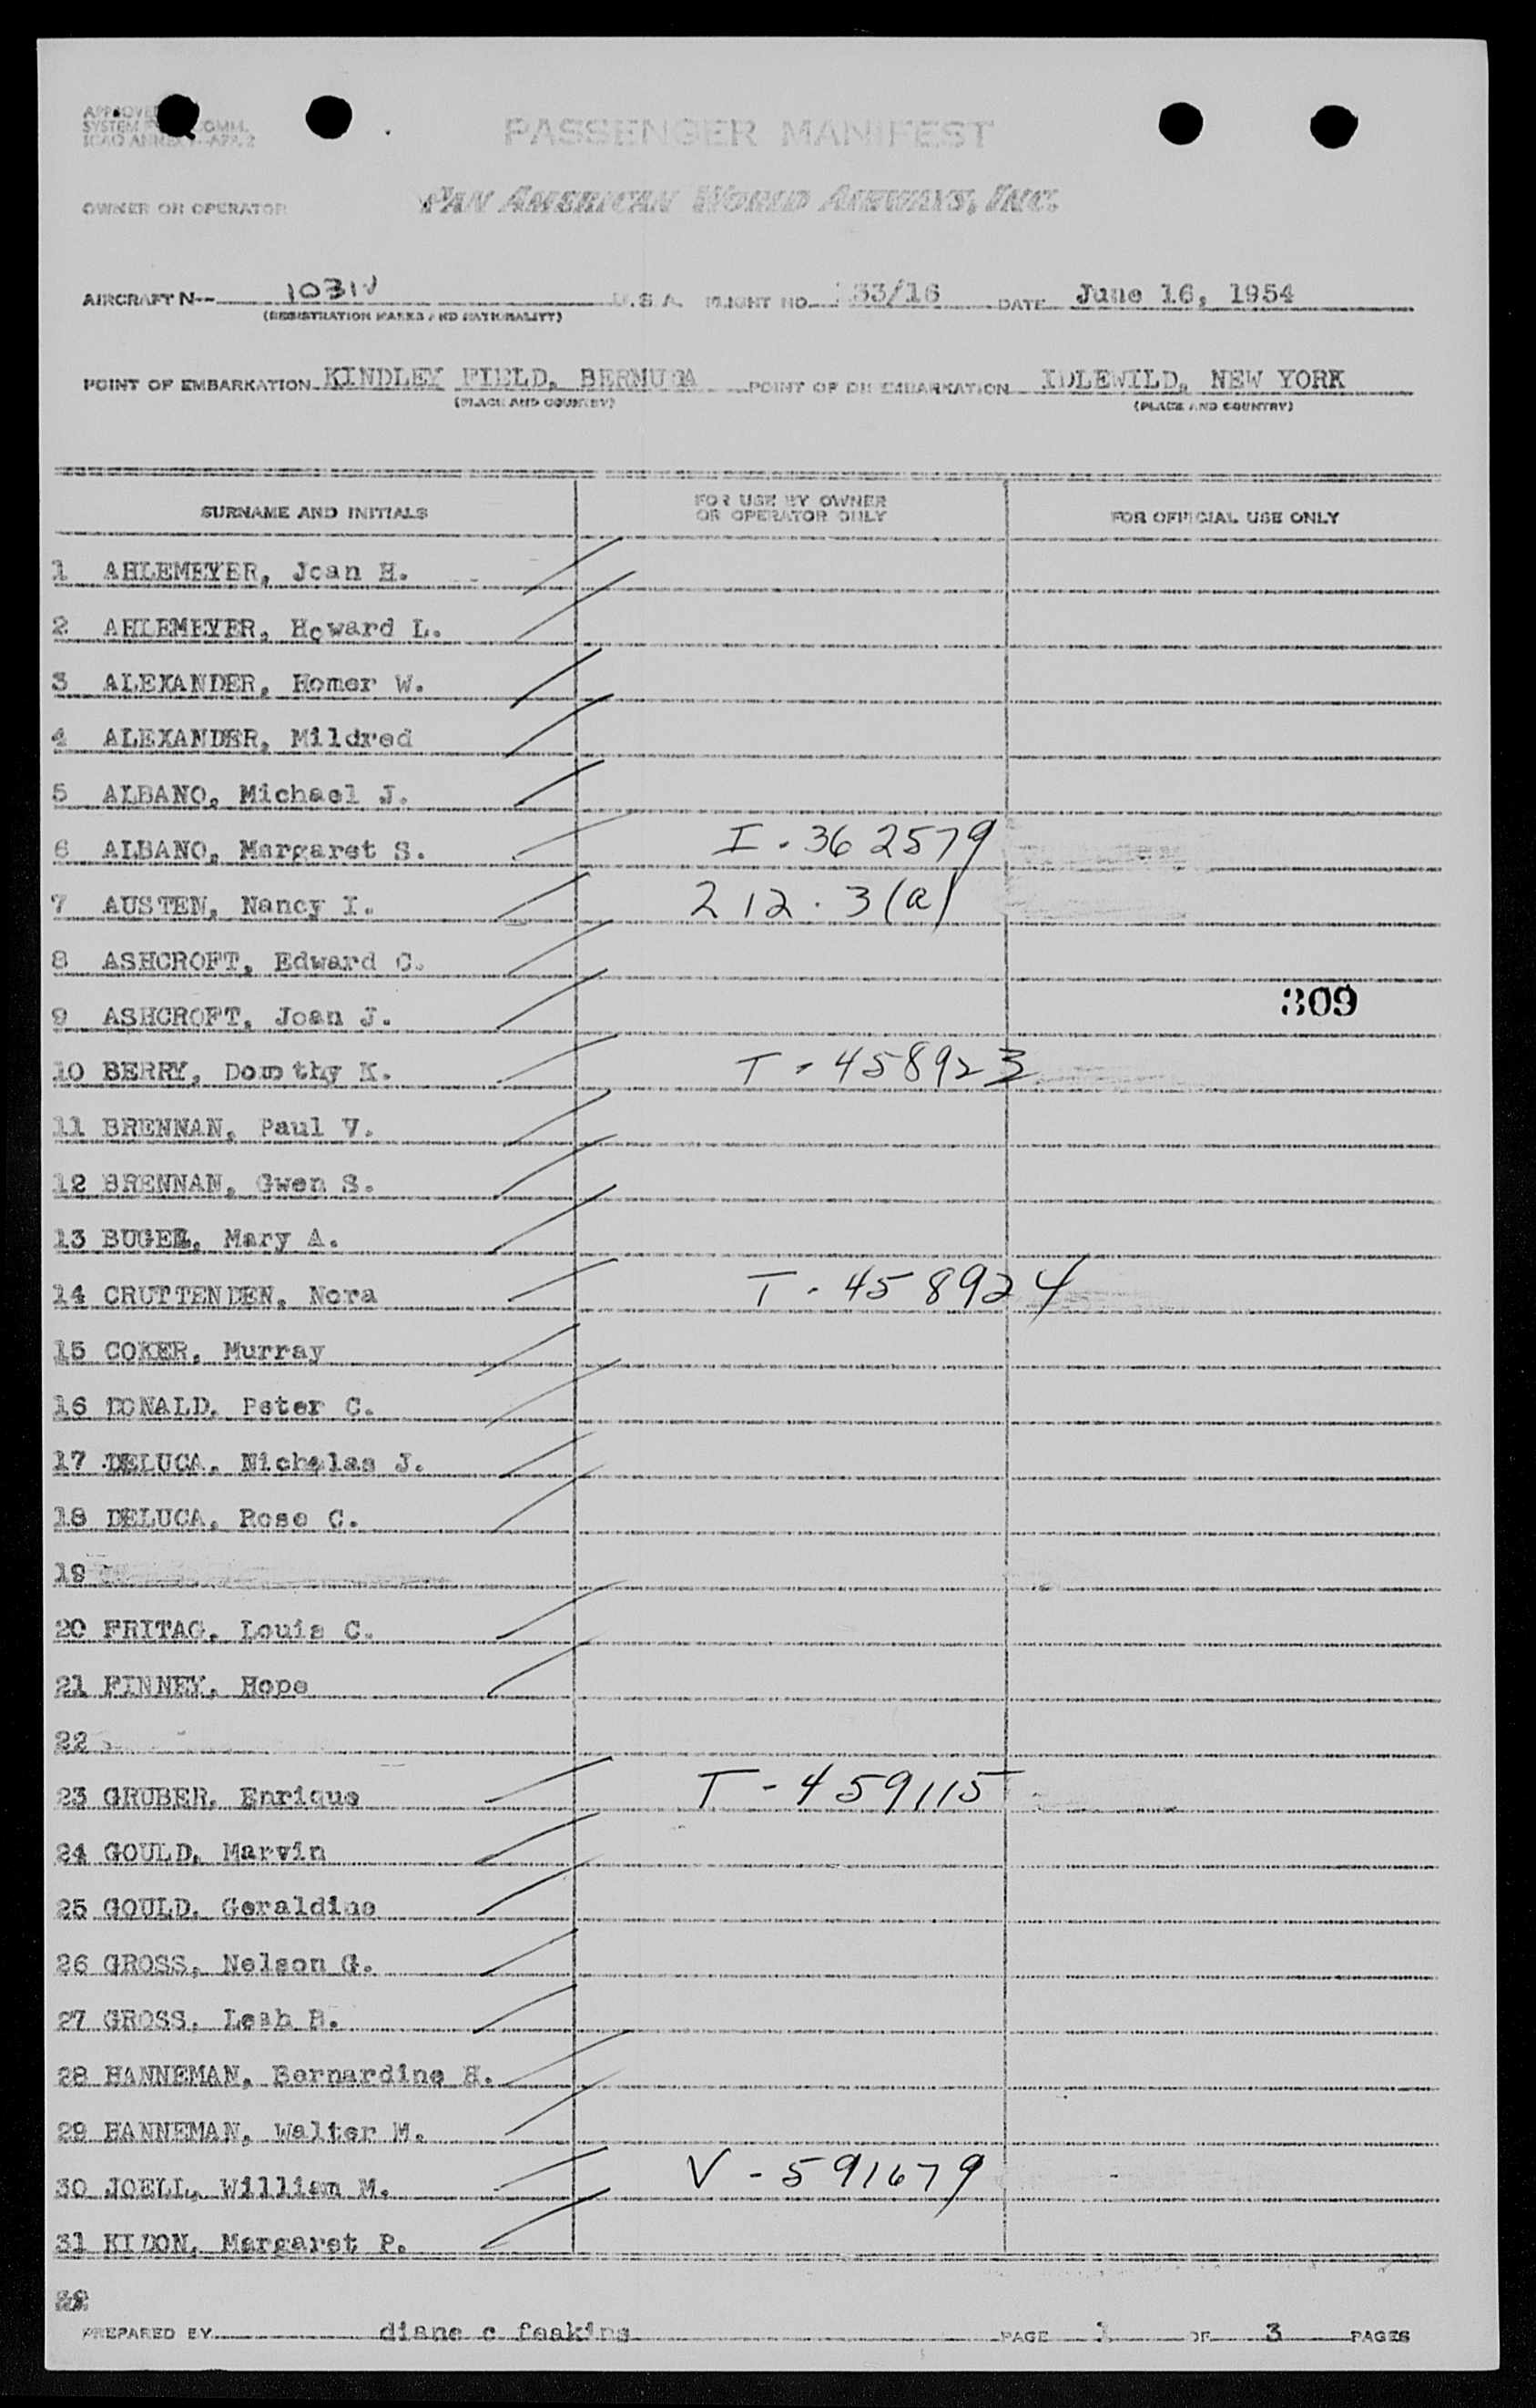 APPROVED
SYSTEM COMM.
ICAO ANNEX
PASSENGER MANIFEST
OWNER OR OPERATOR PAN AMERICAN WORLD AIRWAYS, INC.
AIRCRAFT N-- 1031V U.S.A. FLIGHT NO. 133/16 DATE June 16, 1954
(REGISTRATION MARKS AND NATIONALITY)
POINT OF EMBARKATION KINDLEY FIELD, BERMUDA POINT OF DISEMBARKATION IDLEWILD, NEW YORK
(PLACE AND COUNTRY) (PLACE AND COUNTRY)
SURNAME AND INITIALS FOR USE BY OWNER OR OPERATOR ONLY FOR OFFICIAL USE ONLY
1 AHLEMEYER, Joan H.
2 AHLEMEYER, Howard L.
3 ALEXANDER, Homer W.
4 ALEXANDER, Mildred
5 ALBANO, Michael J.
6 ALBANO, Margaret S. I-362579
7 AUSTEN, Nancy I. 212.3(a)
8 ASHCROFT, Edward C.
309
9 ASHCROFT, Joan J.
10 BERRY, Dorothy K. T-458923
11 BRENNAN, Paul V.
12 BRENNAN, Gwen S.
13 BUGEL, Mary A.
14 CRUTTENDEN, Nora T-458924
15 COKER, Murray
16 DONALD, Peter C.
17 DELUCA, Nicholas J.
18 DELUCA, Rose C.
19
20 FRITAG, Louis C.
21 FINNEY, Hope
22
23 GRUBER, Enrique T-459115
24 GOULD, Marvin
25 GOULD, Geraldine
26 GROSS, Nelson G.
27 GROSS, Leah R.
28 HANNEMAN, Bernardine H.
29 HANNEMAN, Walter M.
30 JOELL, William M. V-591679
31 KIDON, Margaret P.
PREPARED BY diane c feakins PAGE 1 OF 3 PAGES